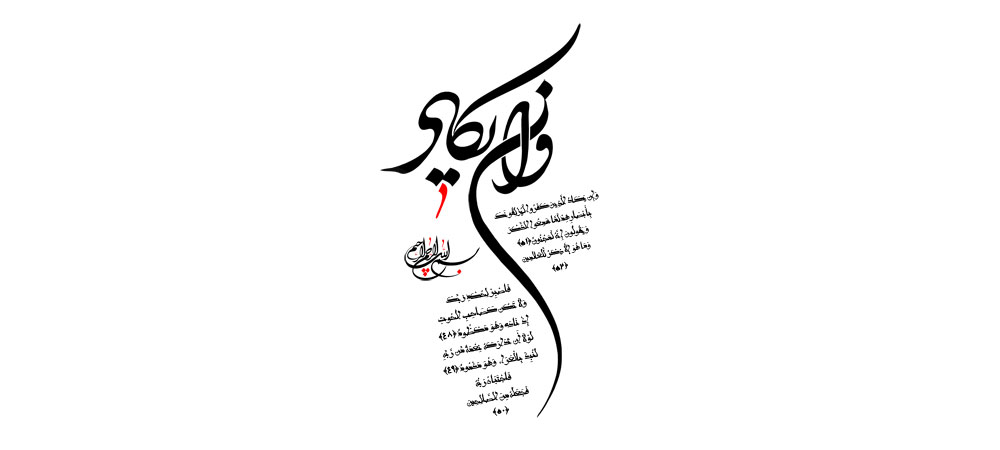 وإن يكاد
بسم الله الرحمن الرحيم
فاصبر لحكم ربك
ولا تكن كصاحب الحوت
إذ نادى وهو مكظوم ﴿٤٨﴾
لولا أن تداركه نعمة من ربه
لنبذ بالعراء وهو مذموم ﴿٤٩﴾
فاجتباه ربه
فجعله من الصالحين
﴿٥٠﴾
وإن يكاد الذين كفروا ليزلقونك
بأبصارهم لما سمعوا الذكر
ويقولون إنه لمجنون ﴿٥١﴾
وما هو إلا ذكر للعالمين
﴿٥٢﴾